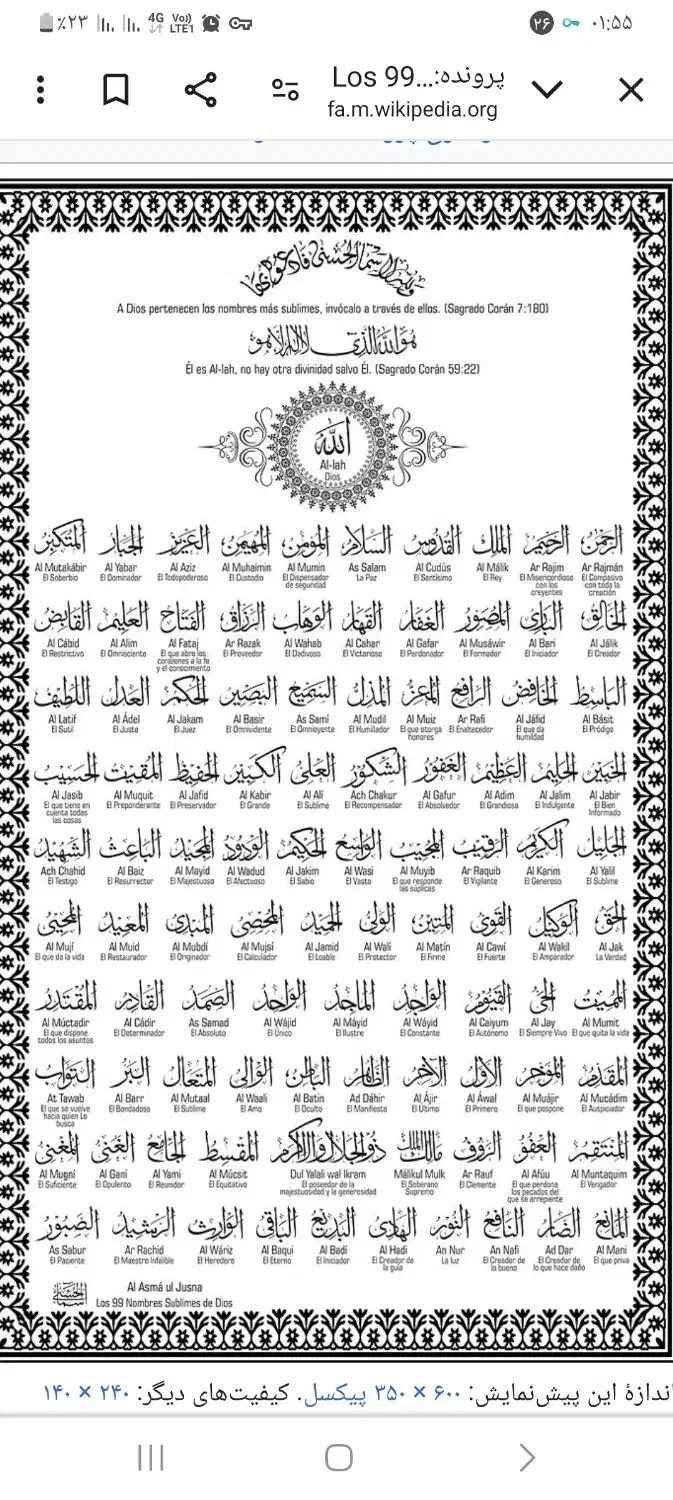 ٪۲۳ 4G Vo)) LTE1 ۲۶ ۰۱:۵۵
پرونده:...Los 99
fa.m.wikipedia.org
ولله الأسماء الحسنى فادعوه بها
A Dios pertenecen los nombres más sublimes, invócalo a través de ellos. (Sagrado Corán 7:180)
هو الله الذي لا إله إلا هو
Él es Al-lah, no hay otra divinidad salvo Él. (Sagrado Corán 59:22)
الله
Al-lah
Dios
الرحمن الرحيم الملك القدوس السلام المؤمن المهيمن العزيز الجبار المتكبر
Al Mutakábir Al Yabar Al Aziz Al Muhaimin Al Mumin As Salam Al Cudús Al Málik Ar Rajim Ar Rajmán
El Soberbio El Dominador El Todopoderoso El Custodio El Dispensador de seguridad La Paz El Santísimo El Rey El Misericordioso con los creyentes El Compasivo con toda la creación
الخالق البارئ المصور الغفار القهار الوهاب الرزاق الفتاح العليم القابض
Al Cábid Al Alim Al Fataj Ar Razak Al Wahab Al Cahar Al Gafar Al Musáwir Al Bari Al Jálik
El Restrictivo El Omnisciente El que abre los corazones a la fe y el conocimiento El Proveedor El Dadivoso El Victorioso El Perdonador El Formador El Iniciador El Creador
الباسط الخافض الرافع المعز المذل السميع البصير الحكم العدل اللطيف
Al Latif Al Ádel Al Jakam Al Basir As Samí Al Mudil Al Muiz Ar Rafi Al Jáfid Al Básit
El Sutil El Justo El Juez El Omnividente El Omnioyente El Humillador El que otorga honores El Enaltecedor El que da humildad El Pródigo
الخبير الحليم العظيم الغفور الشكور العلى الكبير الحفيظ المقيت الحسيب
Al Jasib Al Muquit Al Jafid Al Kabir Al Alí Ach Chakur Al Gafur Al Adim Al Jalim Al Jabir
El que tiene en cuenta todas las cosas El Preponderante El Preservador El Grande El Sublime El Recompensador El Absolvedor El Grandioso El Indulgente El Bien Informado
الجليل الكريم الرقيب المجيب الواسع الحكيم الودود المجيد الباعث الشهيد
Ach Chahid Al Baiz Al Mayid Al Wadud Al Jakim Al Wasi Al Muyib Ar Raquib Al Karim Al Yalil
El Testigo El Resurrector El Majestuoso El Afectuoso El Sabio El Vasto El que responde las súplicas El Vigilante El Generoso El Sublime
الحق الوكيل القوى المتين الولى الحميد المحصى المبدئ المعيد المحيى
Al Mují Al Muid Al Mubdí Al Mujsí Al Jamid Al Walí Al Matín Al Cawí Al Wakil Al Jak
El que da la vida El Restaurador El Originador El Calculador El Loable El Protector El Firme El Fuerte El Amparador La Verdad
المميت الحى القيوم الواجد الماجد الواحد الصمد القادر المقتدر
Al Múctadir Al Cádir As Samad Al Wájid Al Máyid Al Wáyid Al Caiyum Al Jay Al Mumit
El que dispone todos los asuntos El Determinador El Absoluto El Único El Ilustre El Constante El Autónomo El Siempre Vivo El que quita la vida
المقدم المؤخر الأول الآخر الظاهر الباطن الوالى المتعال البر التواب
At Tawab Al Barr Al Mutaal Al Waali Al Batin Ad Dáhir Al Ájir Al Áwal Al Muájir Al Mucádim
El que se vuelve hacia quien Lo busca El Bondadoso El Sublime El Amo El Oculto El Manifiesto El Último El Primero El que pospone El Auspiciador
المنتقم العفو الرؤوف مالك الملك ذو الجلال والإكرام المقسط الجامع الغنى المغنى
Al Mugní Al Ganí Al Yami Al Múcsit Dul Yalali wal Ikram Málikul Mulk Ar Rauf Al Afúu Al Muntaquim
El Suficiente El Opulento El Reunidor El Equitativo El poseedor de la majestuosidad y la generosidad El Soberano Supremo El Clemente El que perdona los pecados del que se arrepiente El Vengador
المانع الضار النافع النور الهادى البديع الباقى الوارث الرشيد الصبور
As Sabur Ar Rachid Al Wáriz Al Baqui Al Badí Al Hadi An Nur An Nafi Ad Dar Al Mani
El Paciente El Maestro Infalible El Heredero El Eterno El Iniciador El Creador de la guía La luz El Creador de lo bueno El Creador de lo que hace daño El que priva
Al Asmá ul Jusna
Los 99 Nombres Sublimes de Dios
اندازهٔ این پیش‌نمایش: ۶۰۰ × ۳۵۰ پیکسل. کیفیت‌های دیگر: ۲۴۰ × ۱۴۰